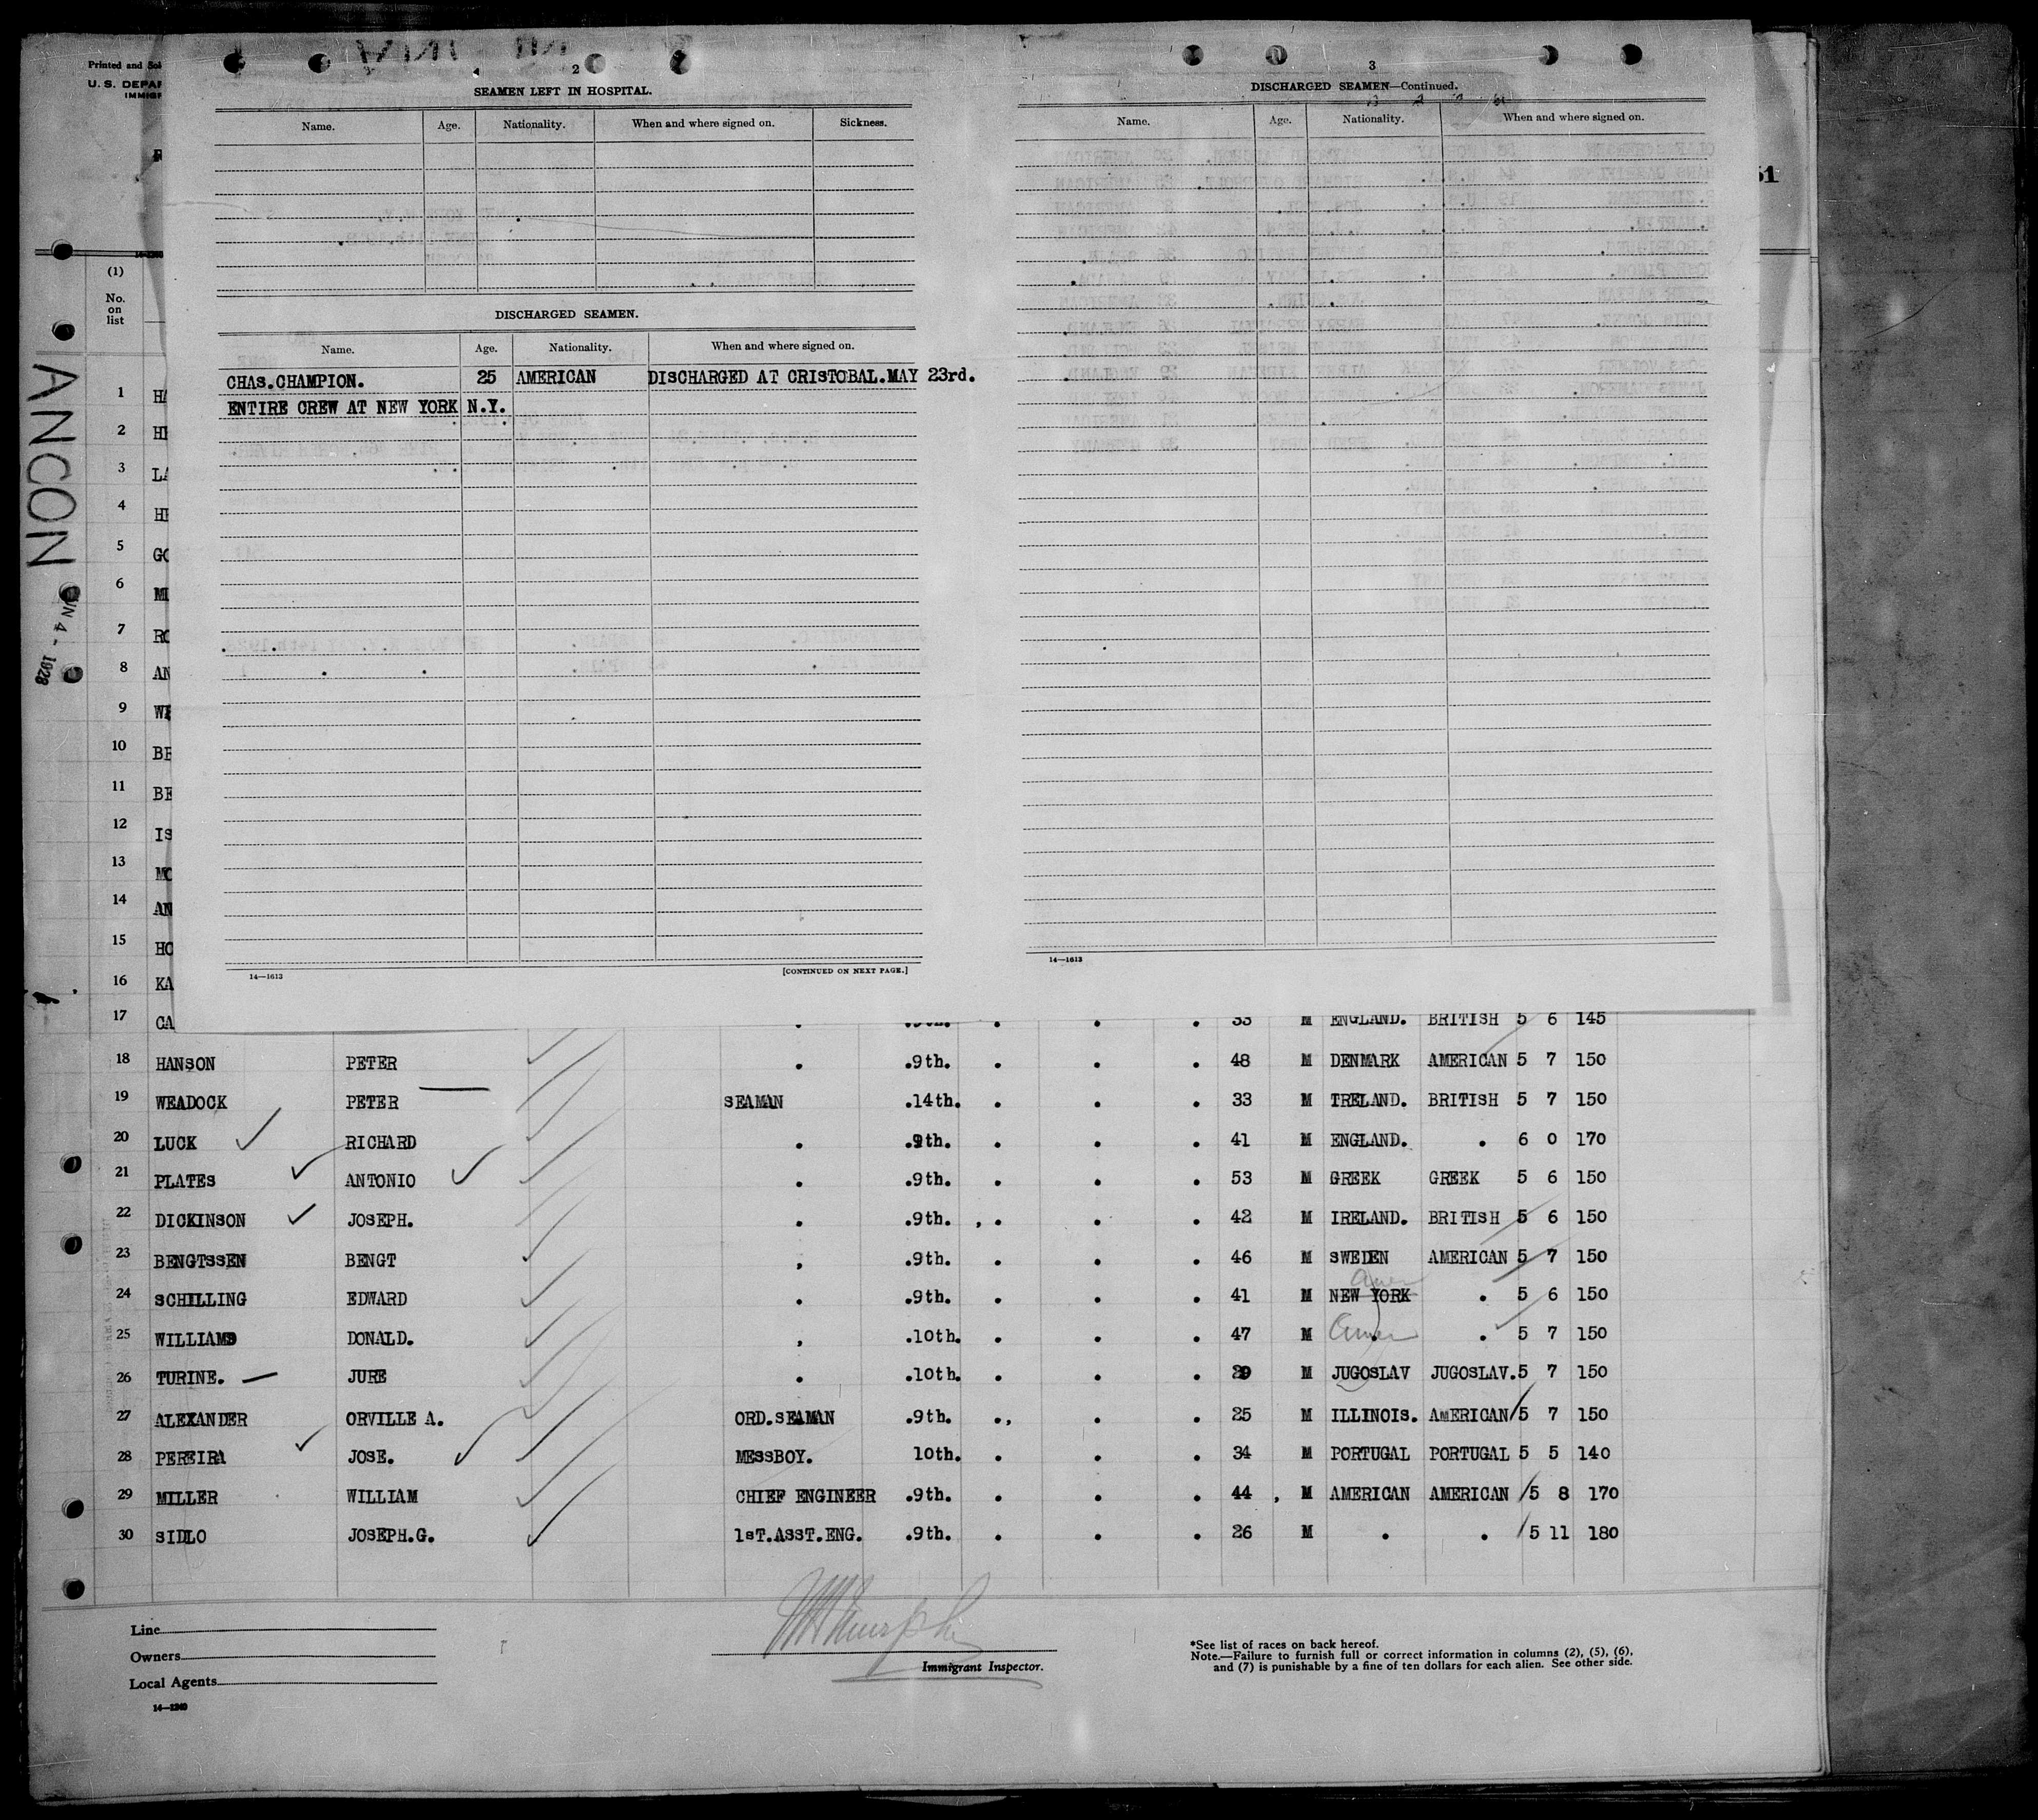 Printed and Sol
U. S. DEPAR
IMMIGR
2
SEAMEN LEFT IN HOSPITAL.
Name. Age. Nationality. When and where signed on. Sickness.
DISCHARGED SEAMEN.
Name. Age. Nationality. When and where signed on.
CHAS.CHAMPION. 25 AMERICAN DISCHARGED AT CRISTOBAL.MAY 23rd.
ENTIRE CREW AT NEW YORK N.Y.
14—1613 [CONTINUED ON NEXT PAGE.]
3
DISCHARGED SEAMEN—Continued.
Name. Age. Nationality. When and where signed on.
14—1613
51
ANCON
JUN 4 - 1928
(1)
No. on list
1 HA
2 HE
3 LA
4 HE
5 GO
6 MI
7 RO
8 AN
9 WE
10 BE
11 BE
12 IS
13 MO
14 AN
15 HO
16 KA
17 CA .9th. . . . 33 M ENGLAND. BRITISH 5 6 145
18 HANSON PETER . .9th. . . . 48 M DENMARK AMERICAN 5 7 150
19 WEADOCK PETER SEAMAN .14th. . . . 33 M IRELAND. BRITISH 5 7 150
20 LUCK RICHARD . .9th. . . . 41 M ENGLAND. . 6 0 170
21 PLATES ANTONIO . .9th. . . . 53 M GREEK GREEK 5 6 150
22 DICKINSON JOSEPH. . .9th. , . . . 42 M IRELAND. BRITISH 5 6 150
23 BENGTSSEN BENGT , .9th. . . . 46 M SWEDEN AMERICAN 5 7 150
24 SCHILLING EDWARD . .9th. . . . 41 M NEW YORK Amer . 5 6 150
25 WILLIAMS DONALD. , .10th. . . . 47 M . Amer . 5 7 150
26 TURINE. JURE . .10th. . . . 29 M JUGOSLAV JUGOSLAV. 5 7 150
27 ALEXANDER ORVILLE A. ORD.SEAMAN .9th. ., . . 25 M ILLINOIS. AMERICAN 5 7 150
28 PEREIRA JOSE. MESSBOY. 10th. . . . 34 M PORTUGAL PORTUGAL 5 5 140
29 MILLER WILLIAM CHIEF ENGINEER .9th. . . . 44 , M AMERICAN AMERICAN 5 8 170
30 SIDLO JOSEPH.G. 1sT.ASST.ENG. .9th. . . . 26 M . . 5 11 180
Line
Owners
Local Agents
14—1240
Murphy
Immigrant Inspector.
*See list of races on back hereof.
Note.—Failure to furnish full or correct information in columns (2), (5), (6),
and (7) is punishable by a fine of ten dollars for each alien. See other side.